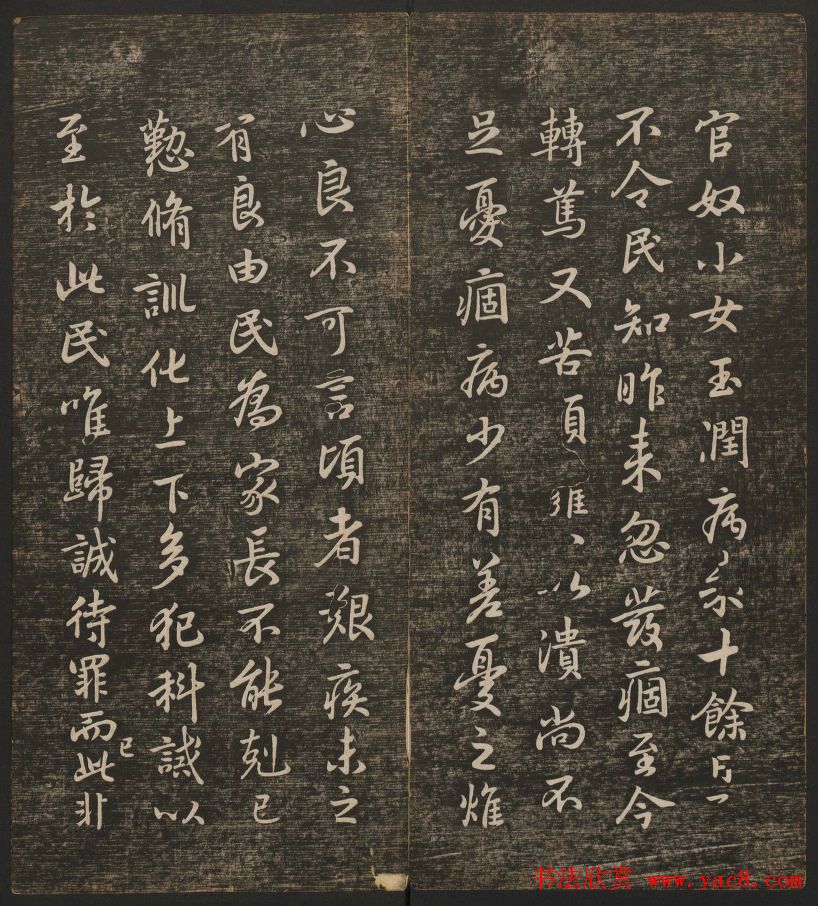 官奴小女玉潤病來十餘日
不令民知昨來忽發痼至今
轉篤又苦頭、癰、以潰尚不
足憂痼病少有差憂之燋
心良不可言頃者艱疾未之
有良由民為家長不能剋己
懃脩訓化上下多犯科誡以
至於此民唯歸誠待罪而已此非
书法欣赏 www.yac8.com